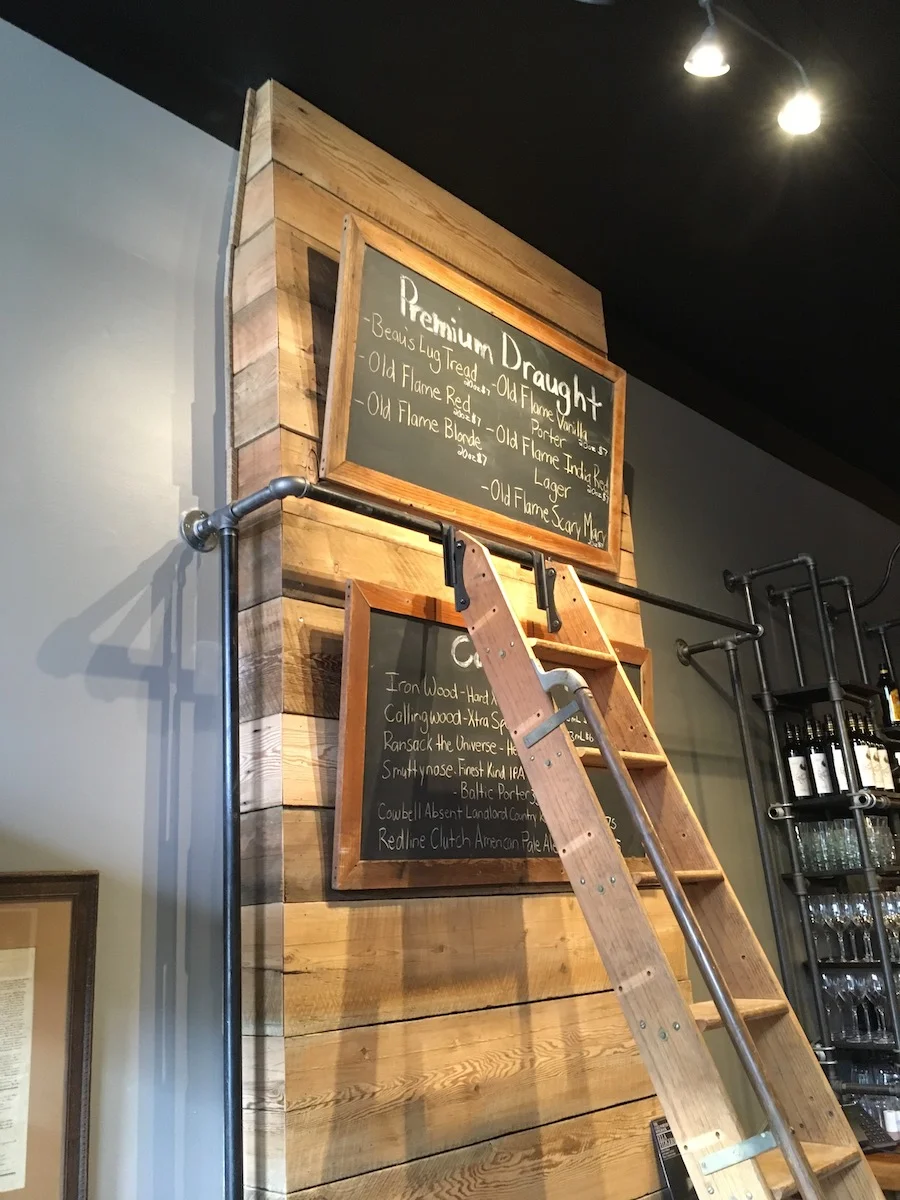 Premium Draught
-Beau's Lug Tread
20oz $7
-Old Flame Red
20oz $7
-Old Flame Blonde
20oz $7
-Old Flame Vanilla
Porter 20oz $7
-Old Flame India Red
Lager 20oz $7
-Old Flame Scary Mary
Iron Wood - Hard
Collingwood - Xtra
Ransack the Universe -
Smuttynose - Finest Kind IPA
- Baltic Porter
Cowbell Absent Landlord Country
Redline Clutch American Pale Ale